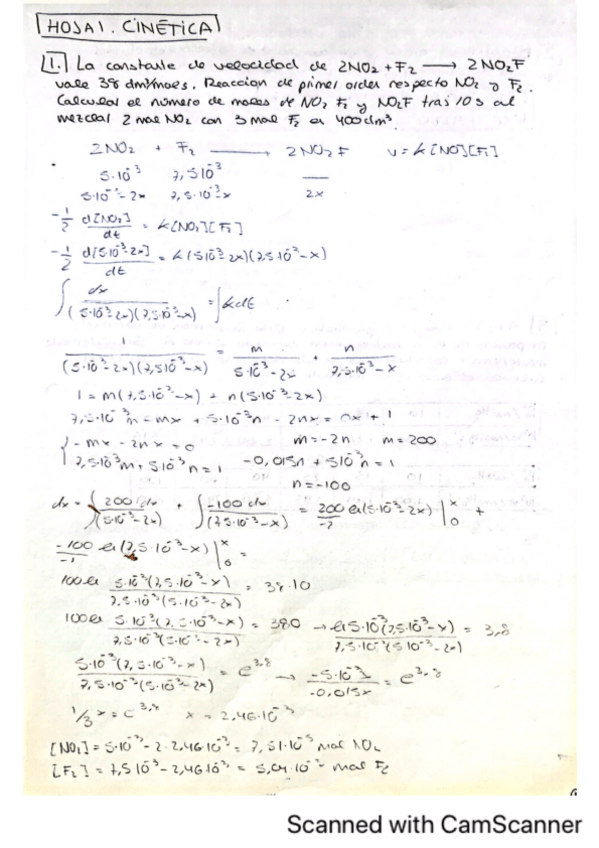 HOJA 1. CINÉTICA
1. La constante de velocidad de 2NO2 + F2 → 2NO2F
vale 38 dm³/moles. Reaccion de primer orden respecto NO2 y F2.
Calcular el número de moles de NO2 F2 y NO2F tras 10 s al
mezclar 2 mol NO2 con 3 mol F2 en 400 dm³.
2NO2 + F2 → 2NO2F v = k[NO][F2]
5·10⁻³ 7,5·10⁻³
5·10⁻³-2x 7,5·10⁻³-x 2x
-1/2 d[NO2]/dt = k[NO2][F2]
-1/2 d[5·10⁻³-2x]/dt = k(5·10⁻³-2x)(7,5·10⁻³-x)
∫ dx/(5·10⁻³-2x)(7,5·10⁻³-x) = ∫kdt
1/(5·10⁻³-2x)(7,5·10⁻³-x) = m/5·10⁻³-2x + n/7,5·10⁻³-x
1 = m(7,5·10⁻³-x) + n(5·10⁻³-2x)
7,5·10⁻³m - mx + 5·10⁻³n - 2nx = 0x + 1
{ -mx - 2nx = 0 m = -2n m = 200
7,5·10⁻³m + 5·10⁻³n = 1 -0,015n + 5·10⁻³n = 1
n = -100
dx = ∫ 200 dx/(5·10⁻³-2x) + ∫ -100 dx/(7,5·10⁻³-x) = 200/-2 ln(5·10⁻³-2x)|ˣ₀ +
-100/-1 ln(7,5·10⁻³-x)|ˣ₀ =
100 ln 5·10⁻³(7,5·10⁻³-x)/7,5·10⁻³(5·10⁻³-2x) = 38·10
100 ln 5·10⁻³(7,5·10⁻³-x)/7,5·10⁻³(5·10⁻³-2x) = 380 → ln 5·10⁻³(7,5·10⁻³-x)/7,5·10⁻³(5·10⁻³-2x) = 3,8
5·10⁻³(7,5·10⁻³-x)/7,5·10⁻³(5·10⁻³-2x) = e³,⁸ → -5·10⁻³/-0,015x = e³,⁸
1/3 x = e³,⁸ x = 2,46·10⁻³
[NO2] = 5·10⁻³ - 2·2,46·10⁻³ = 7,51·10⁻⁵ mol NO2
[F2] = 7,5·10⁻³ - 2,46·10⁻³ = 5,04·10⁻³ mol F2
Scanned with CamScanner